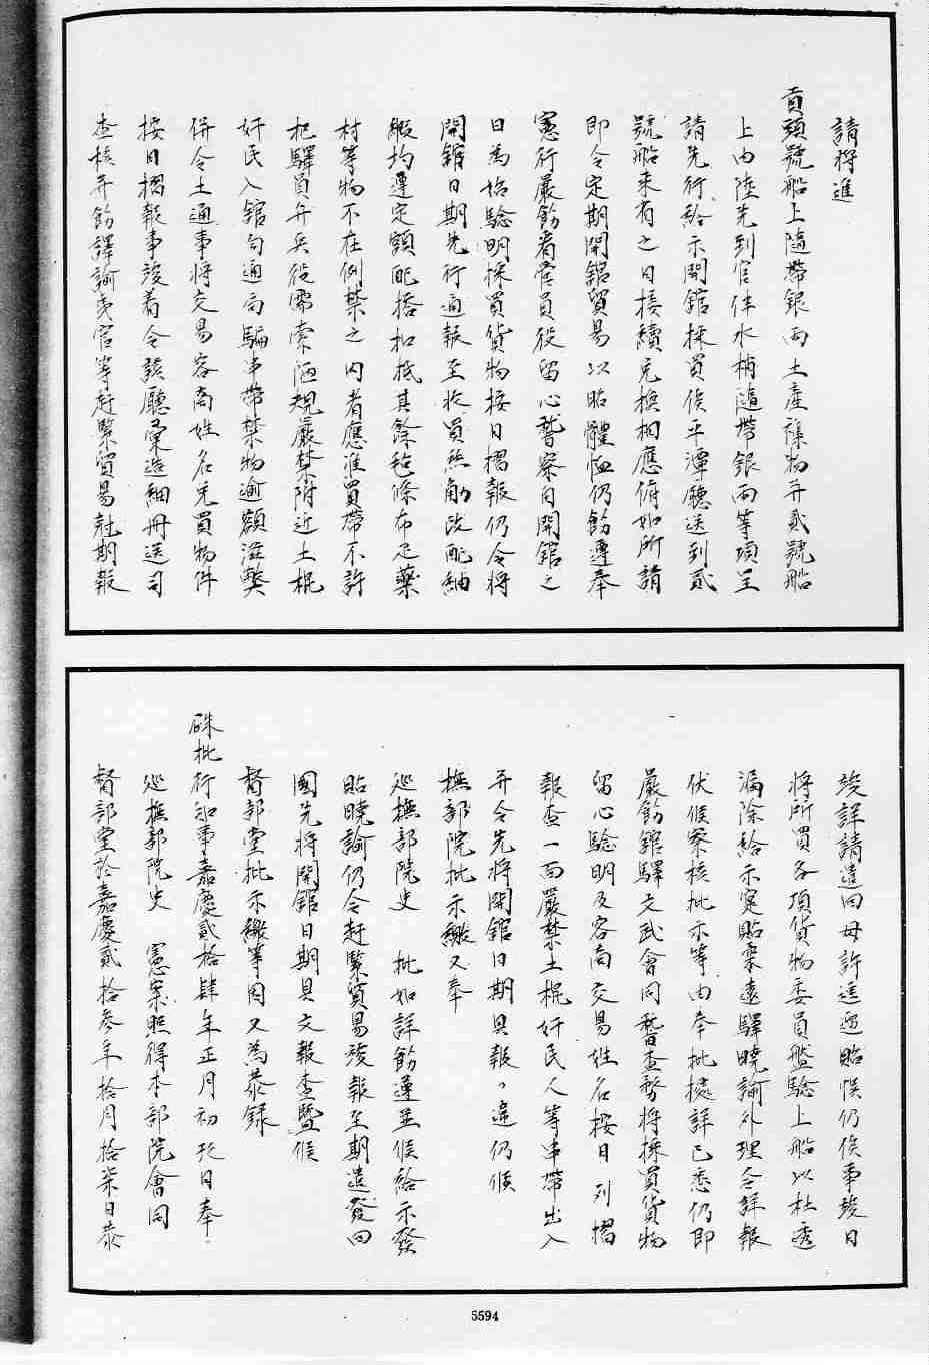 請將進
貢頭號船上隨帶銀兩土產雜物並貳號船
上由陸先到官伴水梢隨帶銀兩等項呈
請先行給示開館採買俟平潭廳送到貳
號船来有之日接續兌換相應俯如所請
即令定期開館貿易以昭體恤仍飭遵奉
憲行嚴飭看官員役留心稽察自開館之
日為始驗明採買貨物按日摺報仍令將
開館日期先行通報至收買絲觔改配紬
緞均遵定額配搭扣抵其餘毡條布疋藥
材等物不在例禁之內者應准買帶不許
把驛員弁兵役需索陋規嚴禁附近土棍
奸民入館勾通局騙串帶禁物逾額滋獘
併令土通事將交易客商姓名兌買物件
按日摺報事竣着令該廳彙造細冊送司
查核并飭譯諭夷官等赶緊貿易尅期報
竣詳請遣回毋許逗遛貽悞仍俟事竣日
將所買各項貨物委員盤驗上船以杜透
漏除給示寔貼柔遠驛曉諭外理合詳報
伏候察核批示等由奉批據詳已悉仍即
嚴飭館驛文武會同稽查務將採買貨物
留心驗明及客商交易姓名按日列摺
報查一面嚴禁土棍奸民人等串帶出入
并令先將開館日期具報、違仍候
撫部院批示繳又奉
巡撫部院史　批如詳飭遵並候給示發
貼曉諭仍令赶緊貿易竣報至期遣發回
國先將開館日期具文報查暨候
督部堂批示繳等因又為恭錄
硃批行知事嘉慶貳拾肆年正月初玖日奉
巡撫部院史　憲案照得本部院會同
督部堂於嘉慶貳拾叁年拾月拾柒日恭
5594